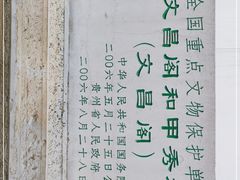 全国重点文物保护单
文昌阁和甲秀
(文昌阁)
中华人民共和国国务院
二〇〇六年五月二十五日公
贵州省人民政府
二〇〇六年八月二十八日